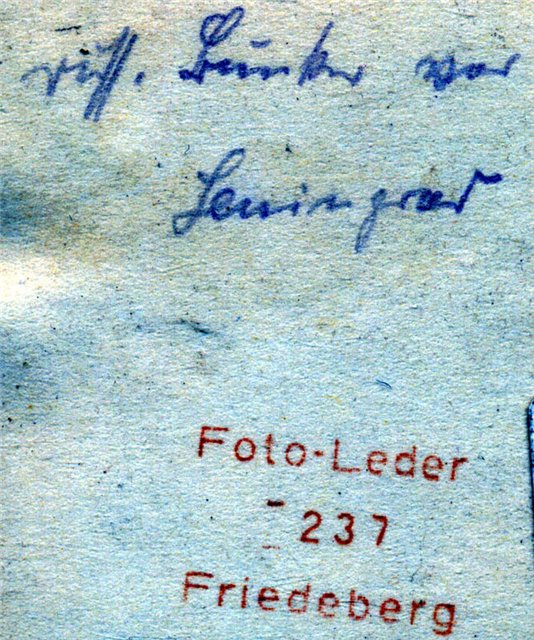 russ. Bunker vor
Leningrad
Foto-Leder
237
Friedeberg